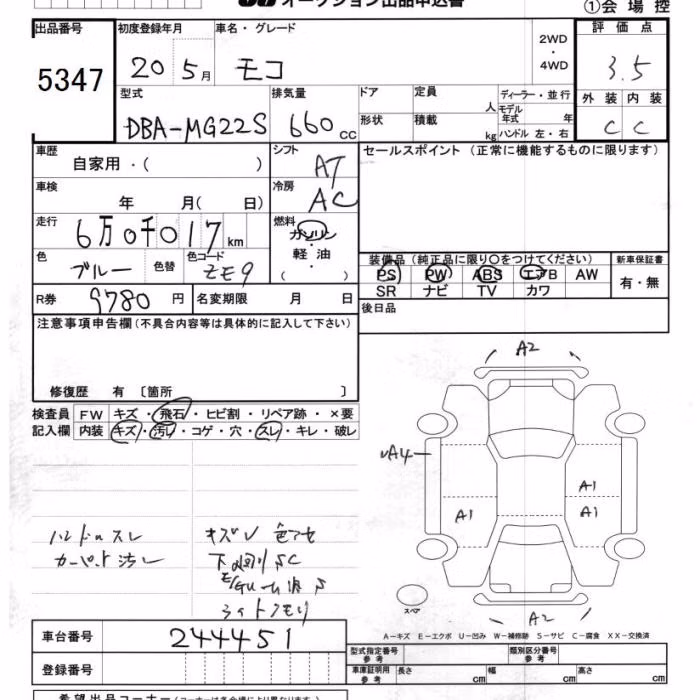 オークション出品申込書
①会場控
出品番号 初度登録年月 車名・グレード 2WD・4WD 評価点
5347 20 5月 モコ 3.5
型式 排気量 ドア 定員 人 ディーラー・並行 外装 内装
DBA-MG22S 660cc 形状 積載 kg モデル年式 年 C C
ハンドル 左・右
車歴 シフト セールスポイント (正常に機能するものに限ります)
自家用・( ) AT
車検 冷房
年 月( 日) AC
走行 燃料
6万0千017km ガソリン・軽油
( )
色 色替 色コード 装備品 (純正品に限り○をつけてください) 新車保証書
ブルー ZE9 PS PW ABS エアB AW 有・無
SR ナビ TV カワ
R券 9780円 名変期限 月 日 後日品
注意事項申告欄 (不具合内容等は具体的に記入して下さい)
修復歴 有 〔箇所 〕
検査員 FW キズ・飛石・ヒビ割・リペア跡・×要
記入欄 内装 キズ・汚レ・コゲ・穴・スレ・キレ・破レ
A2
A4
A1
A1
A1
A2
スペア
ハンドルスレ キズU 色アセ
カーペット汚レ 下回りSC
ライトクモリ
A-キズ E-エクボ U-凹み W-補修跡 S-サビ C-腐食 XX-交換済
車台番号 244451
型式指定番号 参考 類別区分番号 参考
登録番号 車庫証明用 参考 長さ cm 幅 cm 高さ cm
希望出品コーナー